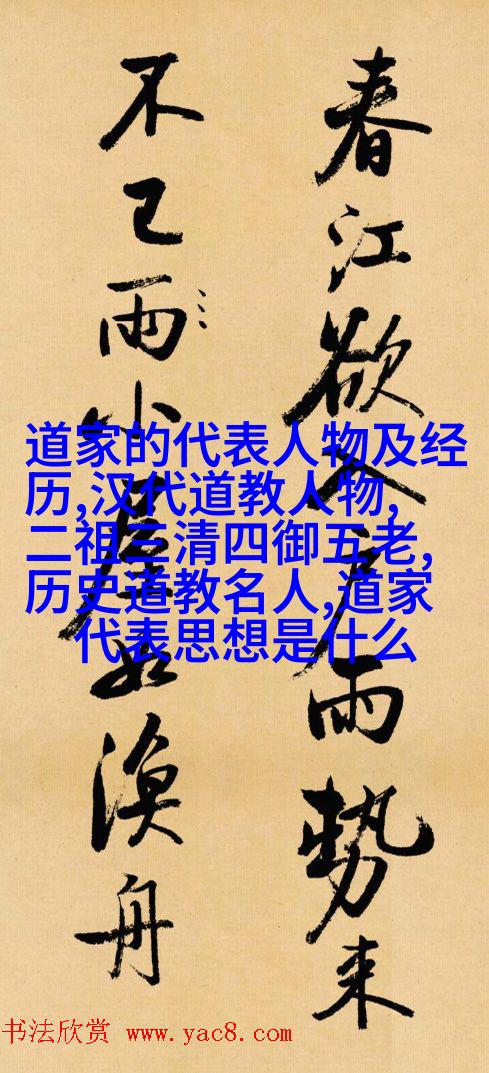 春江欲入户雨勢来
不已雨小屋如漁舟
道家的代表人物及经
历,汉代道教人物,
二祖三清四御五老,
历史道教名人,道家
代表思想是什么
书法欣赏 www.yac8.com